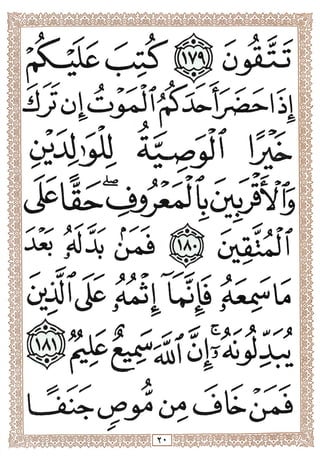 تَتَّقُونَ ١٧٩ كُتِبَ عَلَيْكُمْ
إِذَا حَضَرَ أَحَدَكُمُ ٱلْمَوْتُ إِن تَرَكَ
خَيْرًا ٱلْوَصِيَّةُ لِلْوَٰلِدَيْنِ
وَٱلْأَقْرَبِينَ بِٱلْمَعْرُوفِ ۖ حَقًّا عَلَى
ٱلْمُتَّقِينَ ١٨٠ فَمَنۢ بَدَّلَهُۥ بَعْدَ
مَا سَمِعَهُۥ فَإِنَّمَآ إِثْمُهُۥ عَلَى ٱلَّذِينَ
يُبَدِّلُونَهُۥٓ ۚ إِنَّ ٱللَّهَ سَمِيعٌ عَلِيمٌ ١٨١
فَمَنْ خَافَ مِن مُّوصٍ جَنَفًا
٢٠